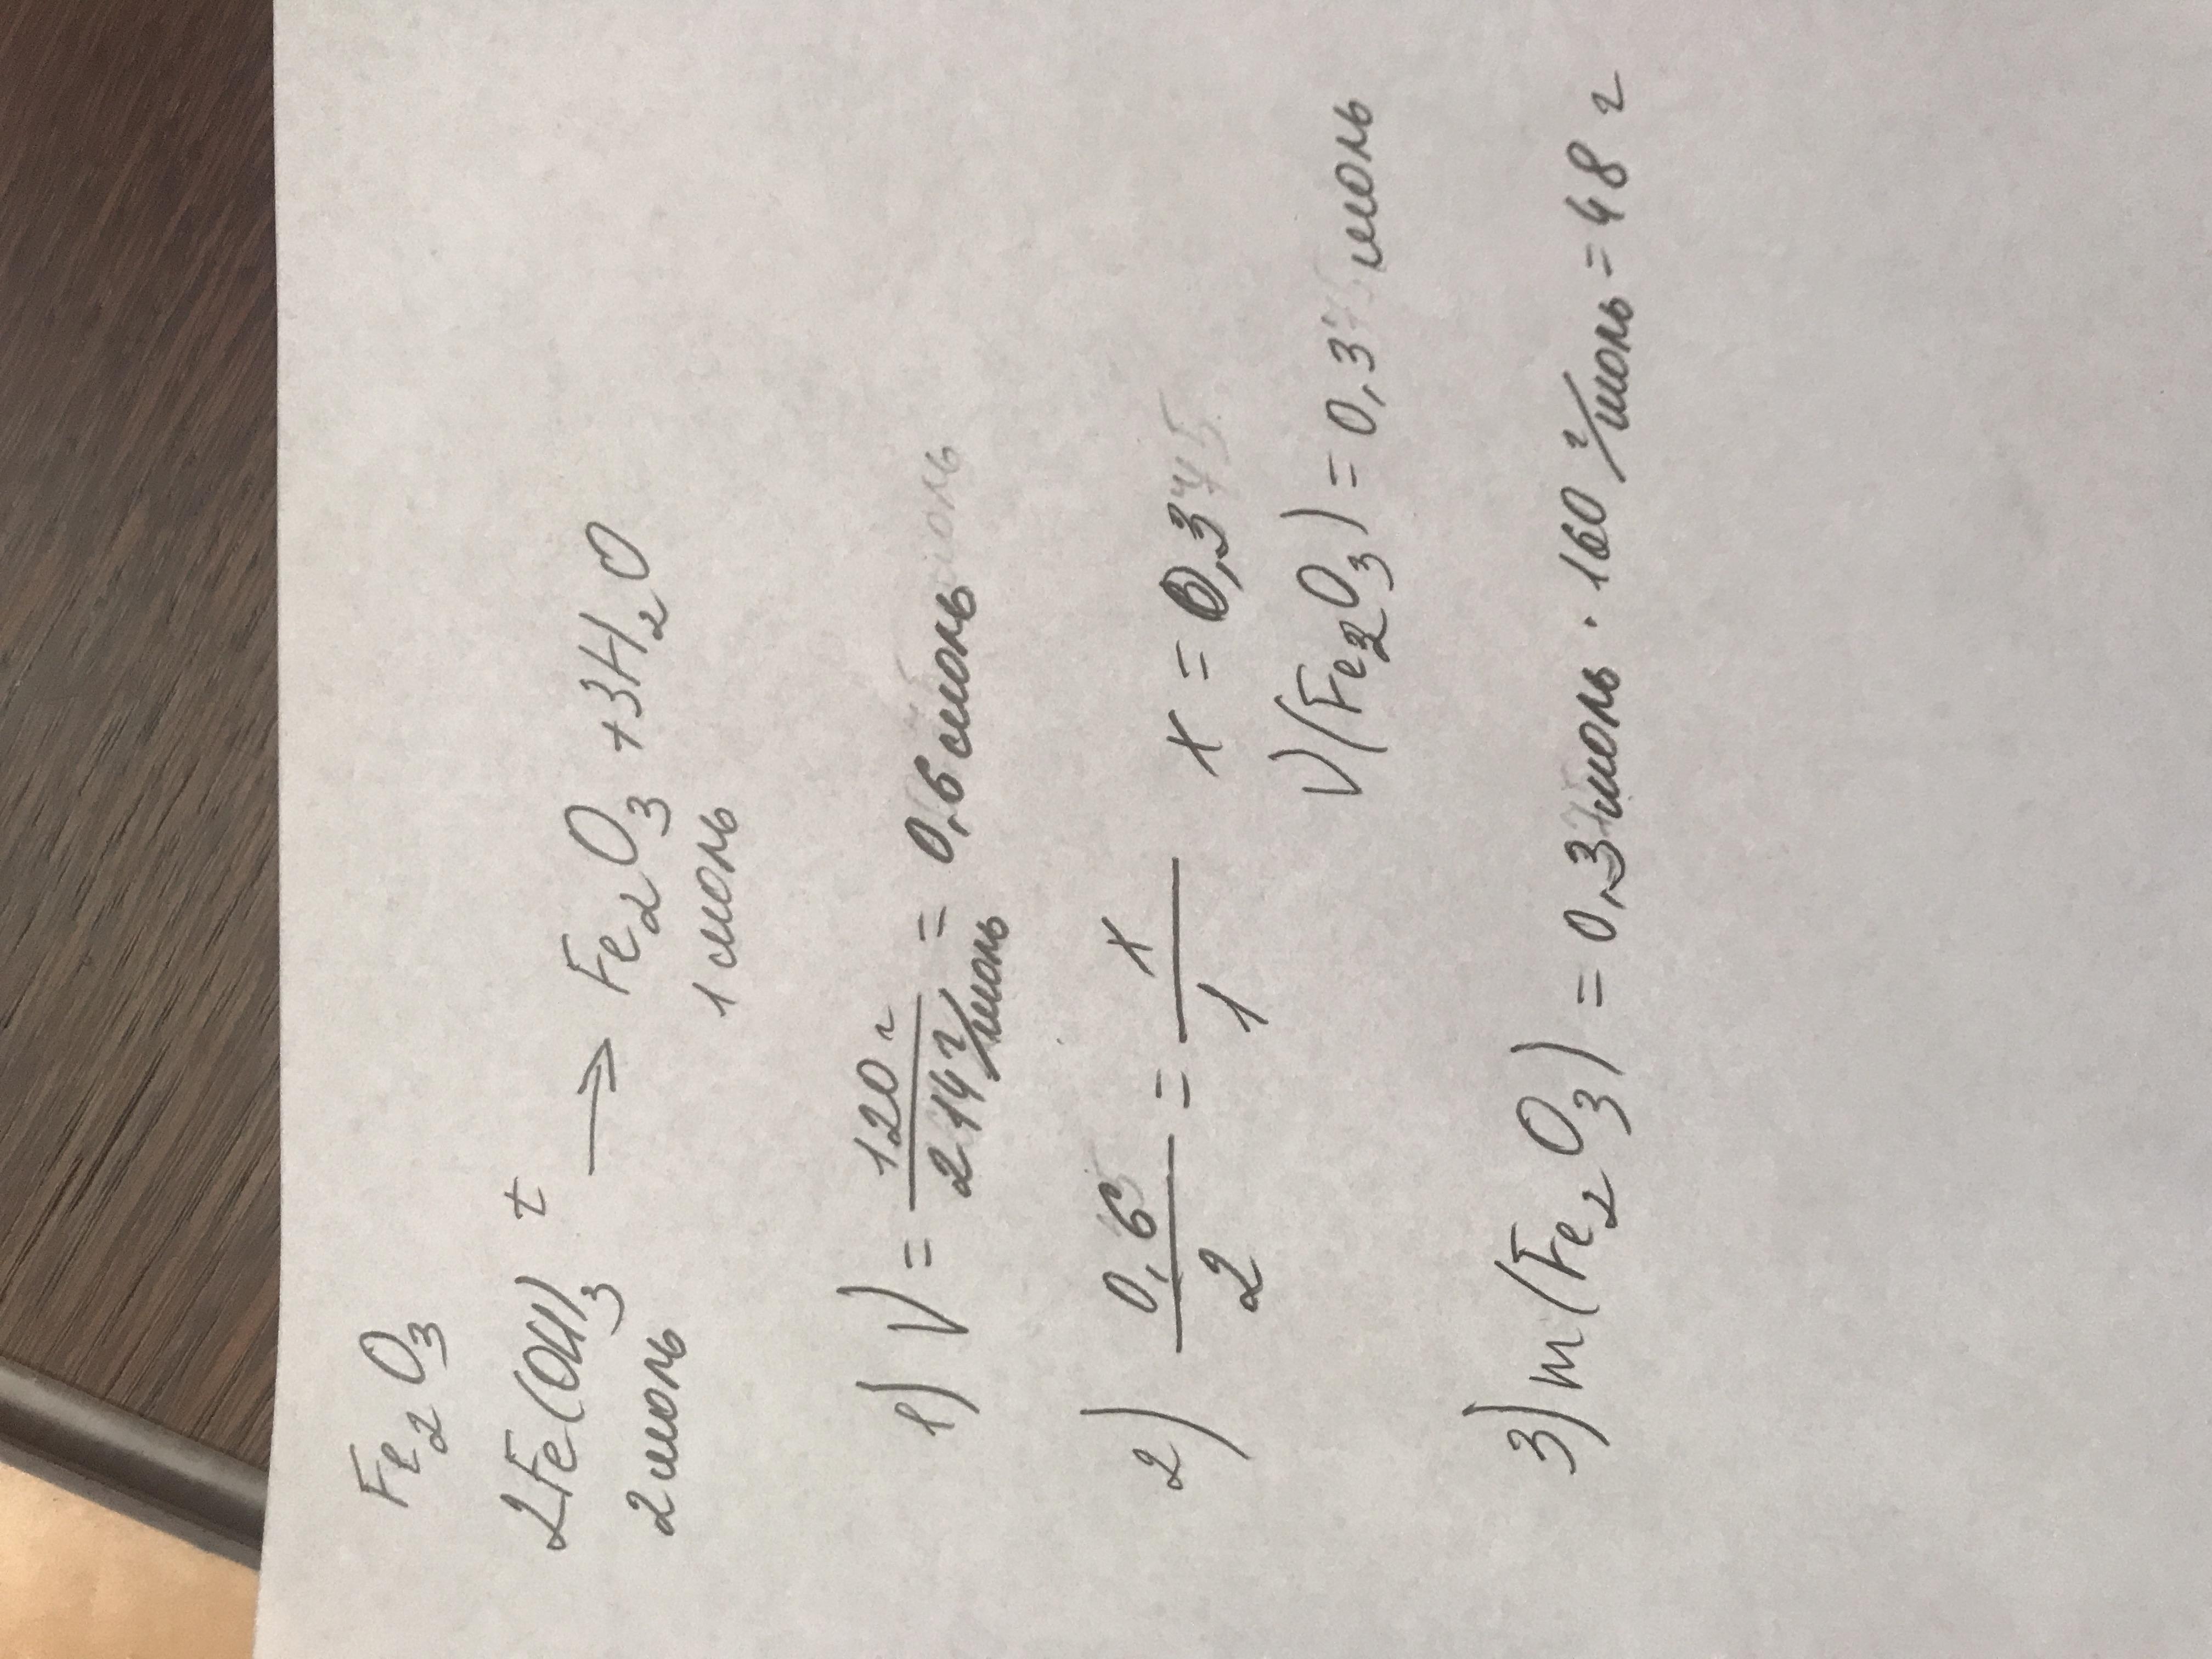 Fe2O3
2Fe(OH)3 t → Fe2O3 + 3H2O
2 моль 1 моль
1) ν = 120 г / 214 г/моль = 0,6 моль
2) 0,6 / 2 = x / 1 x = 0,3
ν(Fe2O3) = 0,3 моль
3) m(Fe2O3) = 0,3 моль · 160 г/моль = 48 г